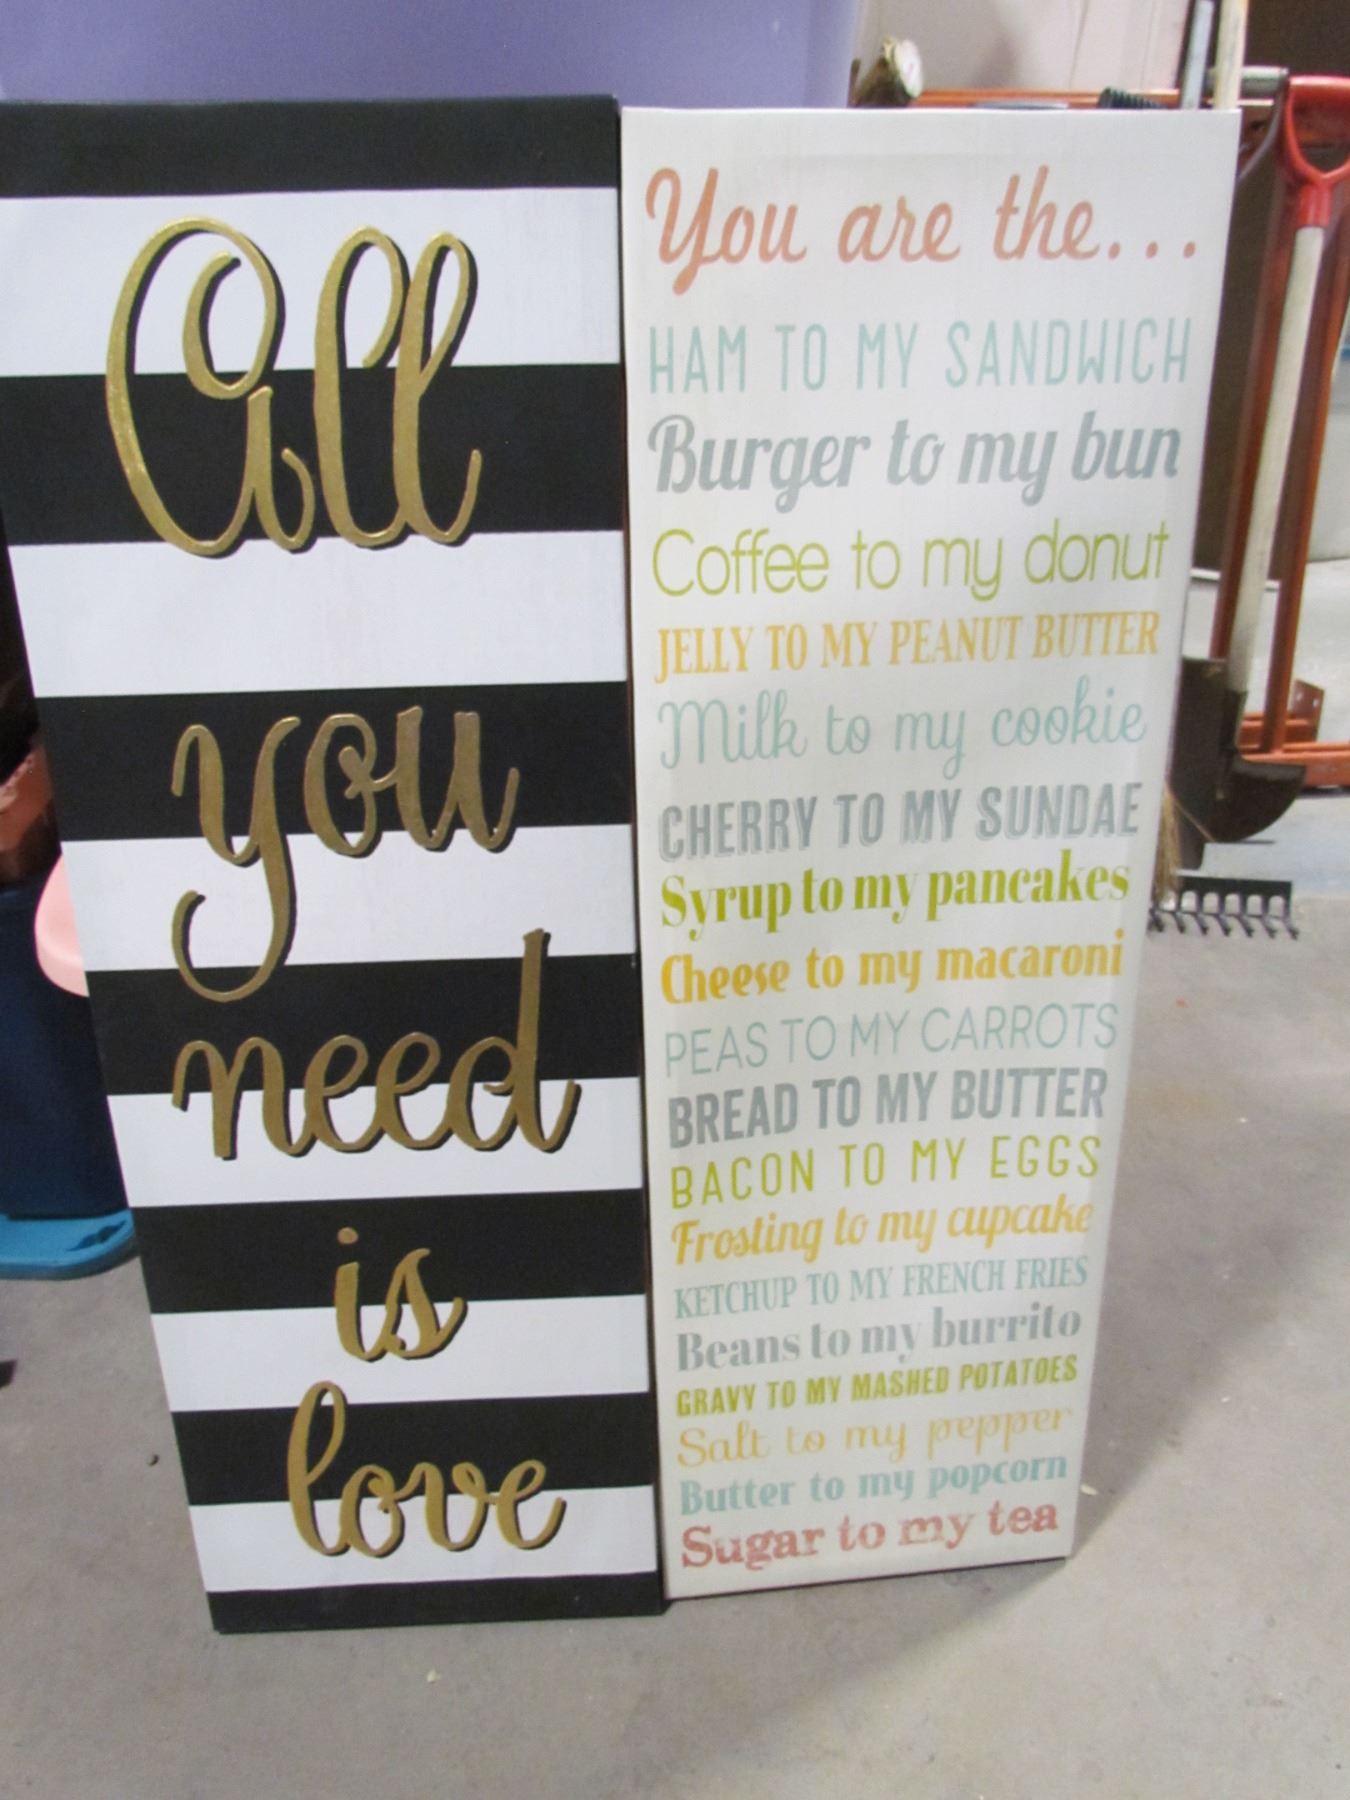 All
you
need
is
love
You are the...
HAM TO MY SANDWICH
Burger to my bun
Coffee to my donut
JELLY TO MY PEANUT BUTTER
Milk to my cookie
CHERRY TO MY SUNDAE
Syrup to my pancakes
Cheese to my macaroni
PEAS TO MY CARROTS
BREAD TO MY BUTTER
BACON TO MY EGGS
Frosting to my cupcake
KETCHUP TO MY FRENCH FRIES
Beans to my burrito
GRAVY TO MY MASHED POTATOES
Salt to my pepper
Butter to my popcorn
Sugar to my tea